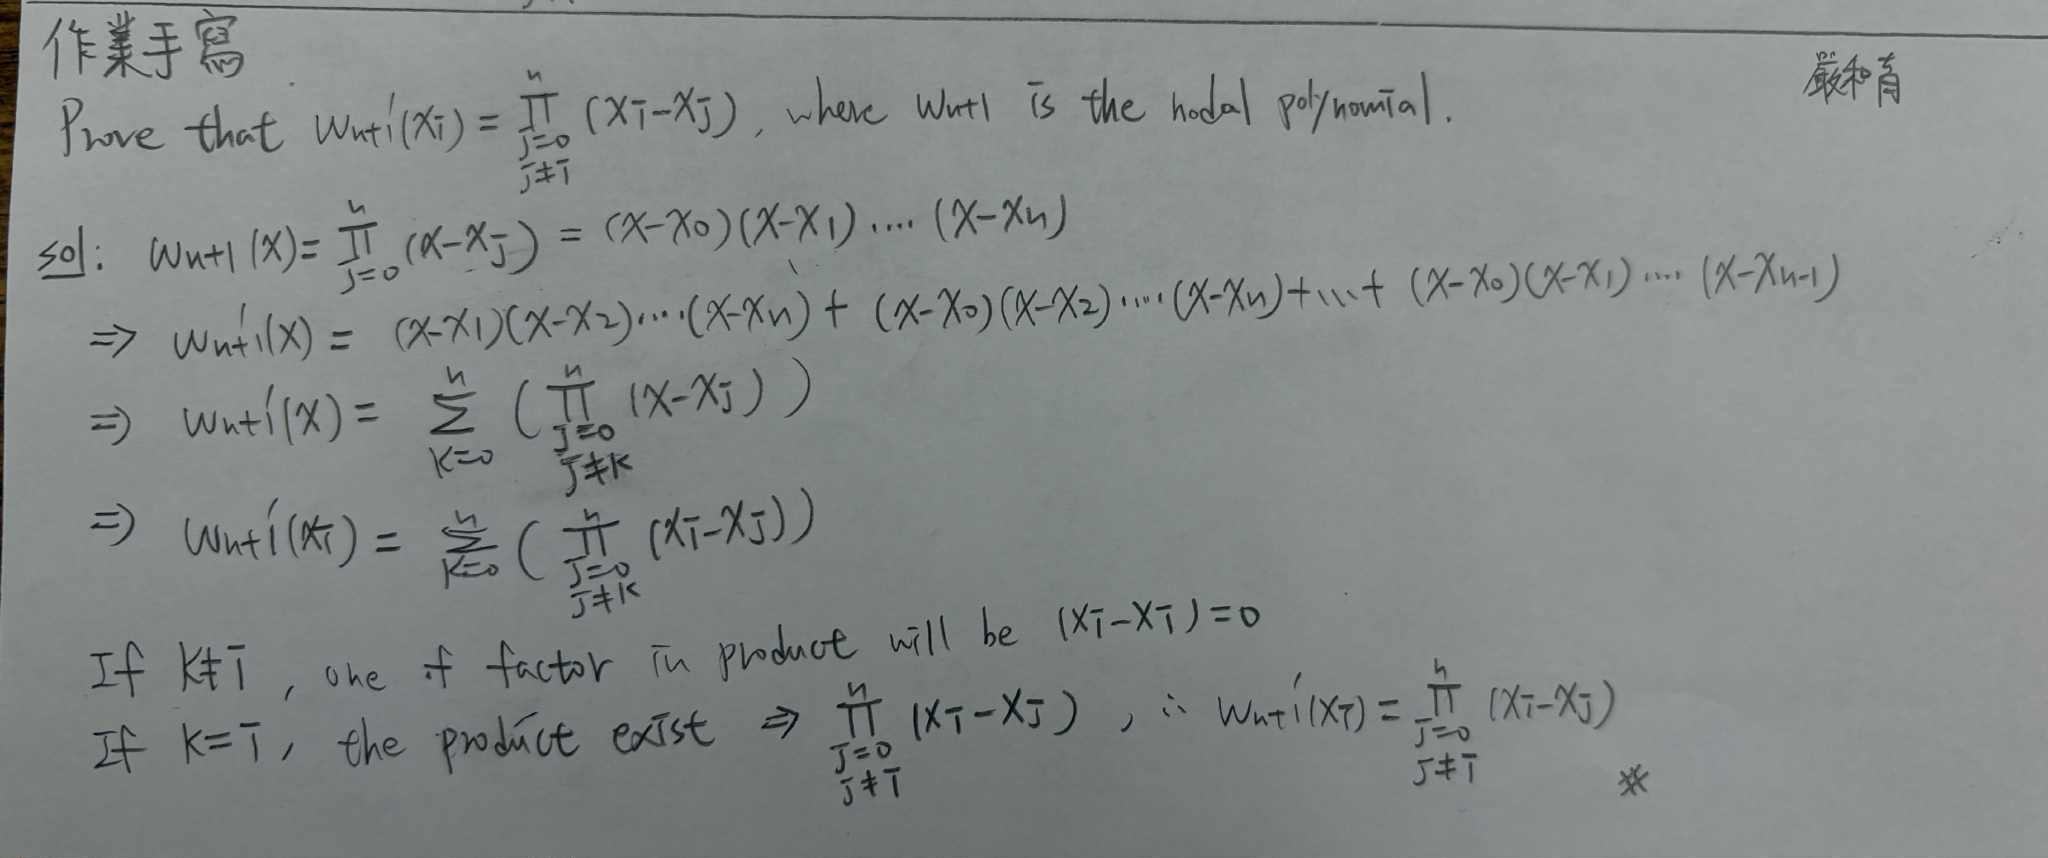 作業手寫
嚴和育
Prove that Wn+1'(xi) = ∏_{j=0, j≠i}^{n} (xi-xj), where Wn+1 is the nodal polynomial.
sol: Wn+1(x) = ∏_{j=0}^{n} (x-xj) = (x-x0)(x-x1)....(x-xn)
⇒ Wn+1'(x) = (x-x1)(x-x2)....(x-xn) + (x-x0)(x-x2)....(x-xn)+...+ (x-x0)(x-x1)....(x-xn-1)
⇒ Wn+1'(x) = ∑_{k=0}^{n} ( ∏_{j=0, j≠k}^{n} (x-xj) )
⇒ Wn+1'(xi) = ∑_{k=0}^{n} ( ∏_{j=0, j≠k}^{n} (xi-xj))
If k≠i, one of factor in product will be (xi-xi)=0
If k=i, the product exist ⇒ ∏_{j=0, j≠i}^{n} (xi-xj), ∴ Wn+1'(xi) = ∏_{j=0, j≠i}^{n} (xi-xj) ※